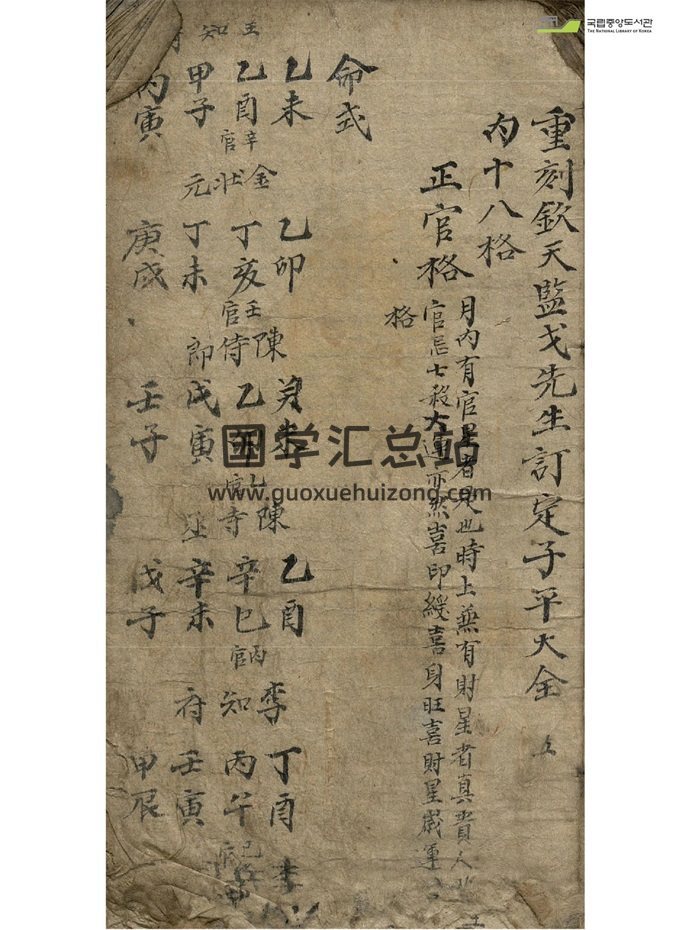 국립중앙도서관
THE NATIONAL LIBRARY OF KOREA
重刻欽天監戈先生訂定子平大全 五
內十八格
正官格
月內有官星者是也時上無有財星者真貴人
官忌七殺大運亦然喜印綬喜身旺喜財星歲運
格
命式
乙未
乙酉 辛官
甲子
丙寅
金
狀
元
乙卯
丁亥 壬官
丁未
庚戌
陳
侍
郎
未
乙卯 官
戊寅
壬子
陳
寺
丞
乙酉
辛巳 丙官
辛未
戊子
李
知
府
丁酉
丙午 己
壬寅
甲辰
李
王
知
国学汇总站
www.guoxuehuizong.com